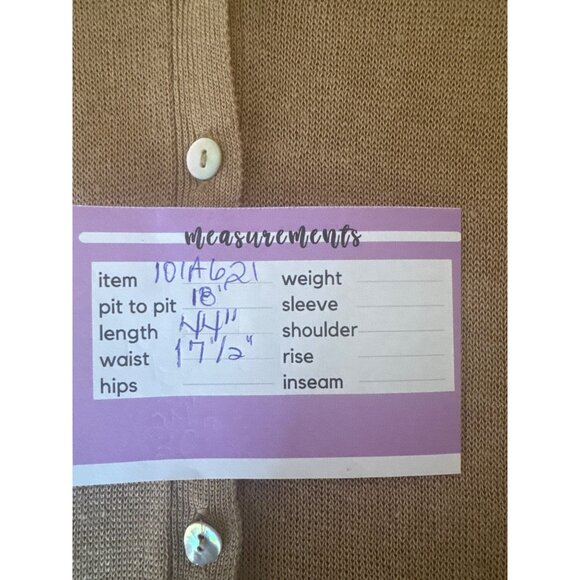 measurements
item 101A621
pit to pit 18"
length 44"
waist 17 1/2"
hips
weight
sleeve
shoulder
rise
inseam